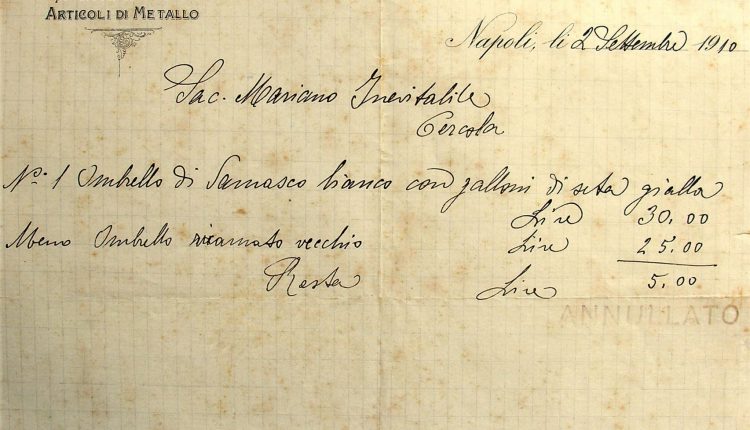 ARTICOLI DI METALLO
Napoli, li 2 Settembre 1910
Sac. Mariano Inevitalile
Cercola
No. 1 Ombrello di Damasco bianco con galloni di seta gialla
Lire 30.00
Meno Ombrello ricamato vecchio Lire 25.00
Resta Lire 5.00
ANNULLATO